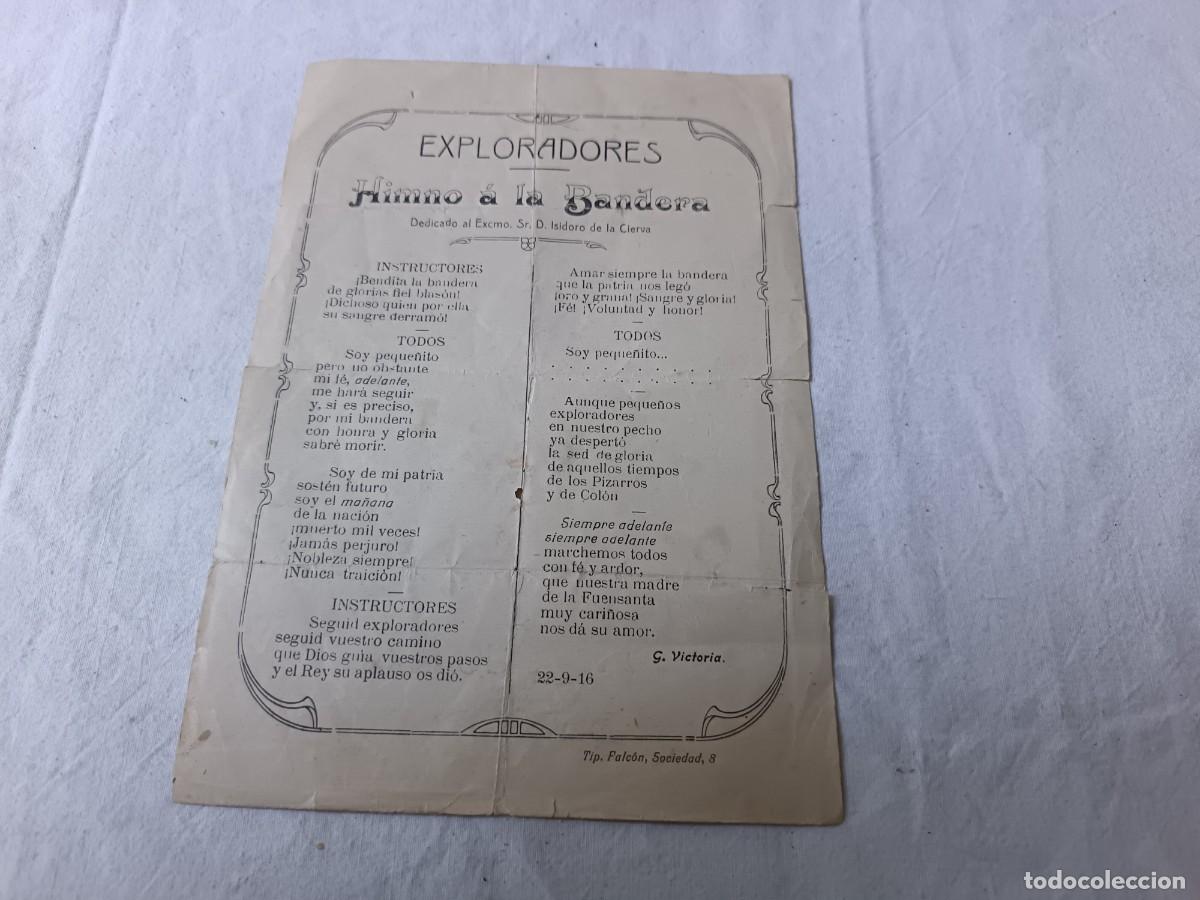 EXPLORADORES
Himno á la Bandera
Dedicado al Excmo. Sr. D. Isidoro de la Cierva
INSTRUCTORES
¡Bendita la bandera
de glorias fiel blasón!
¡Dichoso quien por ella
su sangre derramó!
TODOS
Soy pequeñito
pero no obstante
mi fé, adelante,
me hará seguir
y, si es preciso,
por mi bandera
con honra y gloria
sabré morir.
Soy de mi patria
sostén futuro
soy el mañana
de la nación
¡muerto mil veces!
¡Jamás perjuro!
¡Nobleza siempre!
¡Nunca traición!
INSTRUCTORES
Seguid exploradores
seguid vuestro camino
que Dios guia vuestros pasos
y el Rey su aplauso os dió.
Amar siempre la bandera
que la patria nos legó
¡oro y grana! ¡Sangre y gloria!
¡Fé! ¡Voluntad y honor!
TODOS
Soy pequeñito...
. . . . . . . . . .
. . . . . . . . . .
Aunque pequeños
exploradores
en nuestro pecho
ya despertó
la sed de gloria
de aquellos tiempos
de los Pizarros
y de Colón
Siempre adelante
siempre adelante
marchemos todos
con fé y ardor,
que nuestra madre
de la Fuensanta
muy cariñosa
nos dá su amor.
G. Victoria.
22-9-16
Tip. Falcón, Sociedad, 8
todocoleccion